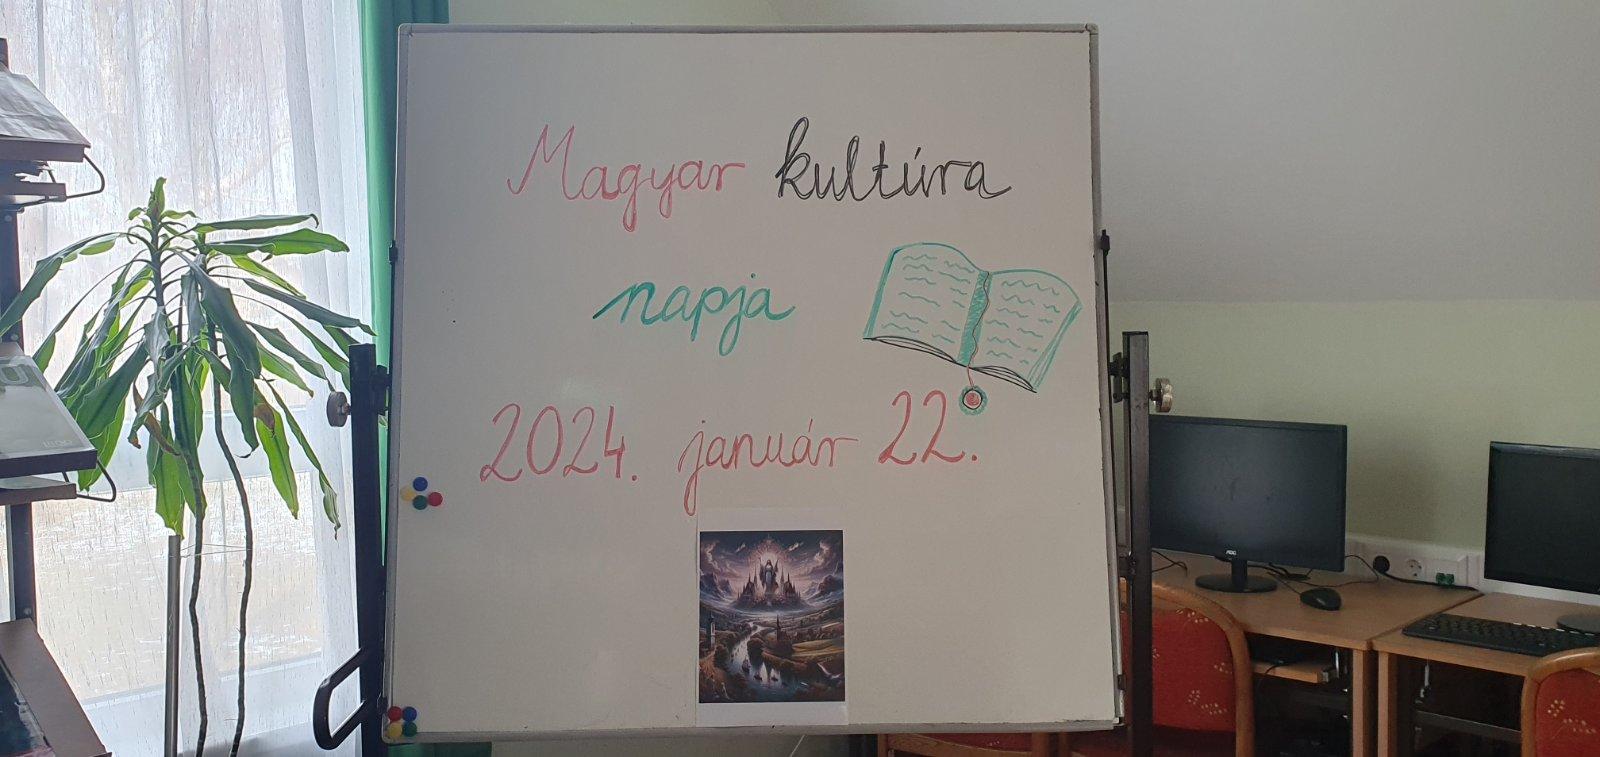 Magyar kultúra
napja
2024. január 22.
AOC